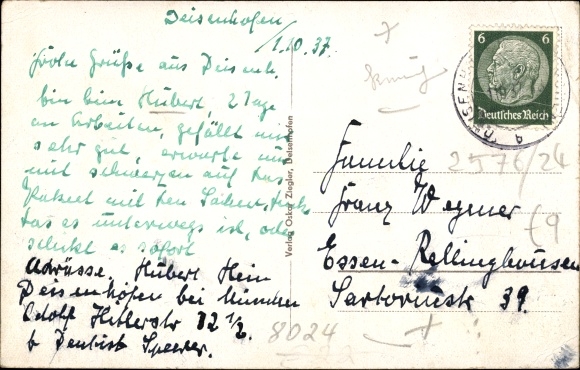 Deisenhofen
1.10.37.
Frohe Grüße aus Deisenh.
bin beim Hubert. 2 Tage
am Arbeiten, gefällt mir
sehr gut, erwarte nur
mit schmerzen auf das
Paket mit den Sachen,
das es unterwegs ist, oder
schickt es sofort
Adrässe. Hubert Hein
Deisenhofen bei München
Adolf Hitlerstr 12 1/2.
b Dentist Speerer.
Verlag Oskar Ziegler, Deisenhofen
6 6
Deutsches Reich
DEISENH
A
Familie
Franz Wegener
Essen-Rellinghausen
Sartoriusstr 39.
2576/24
8024